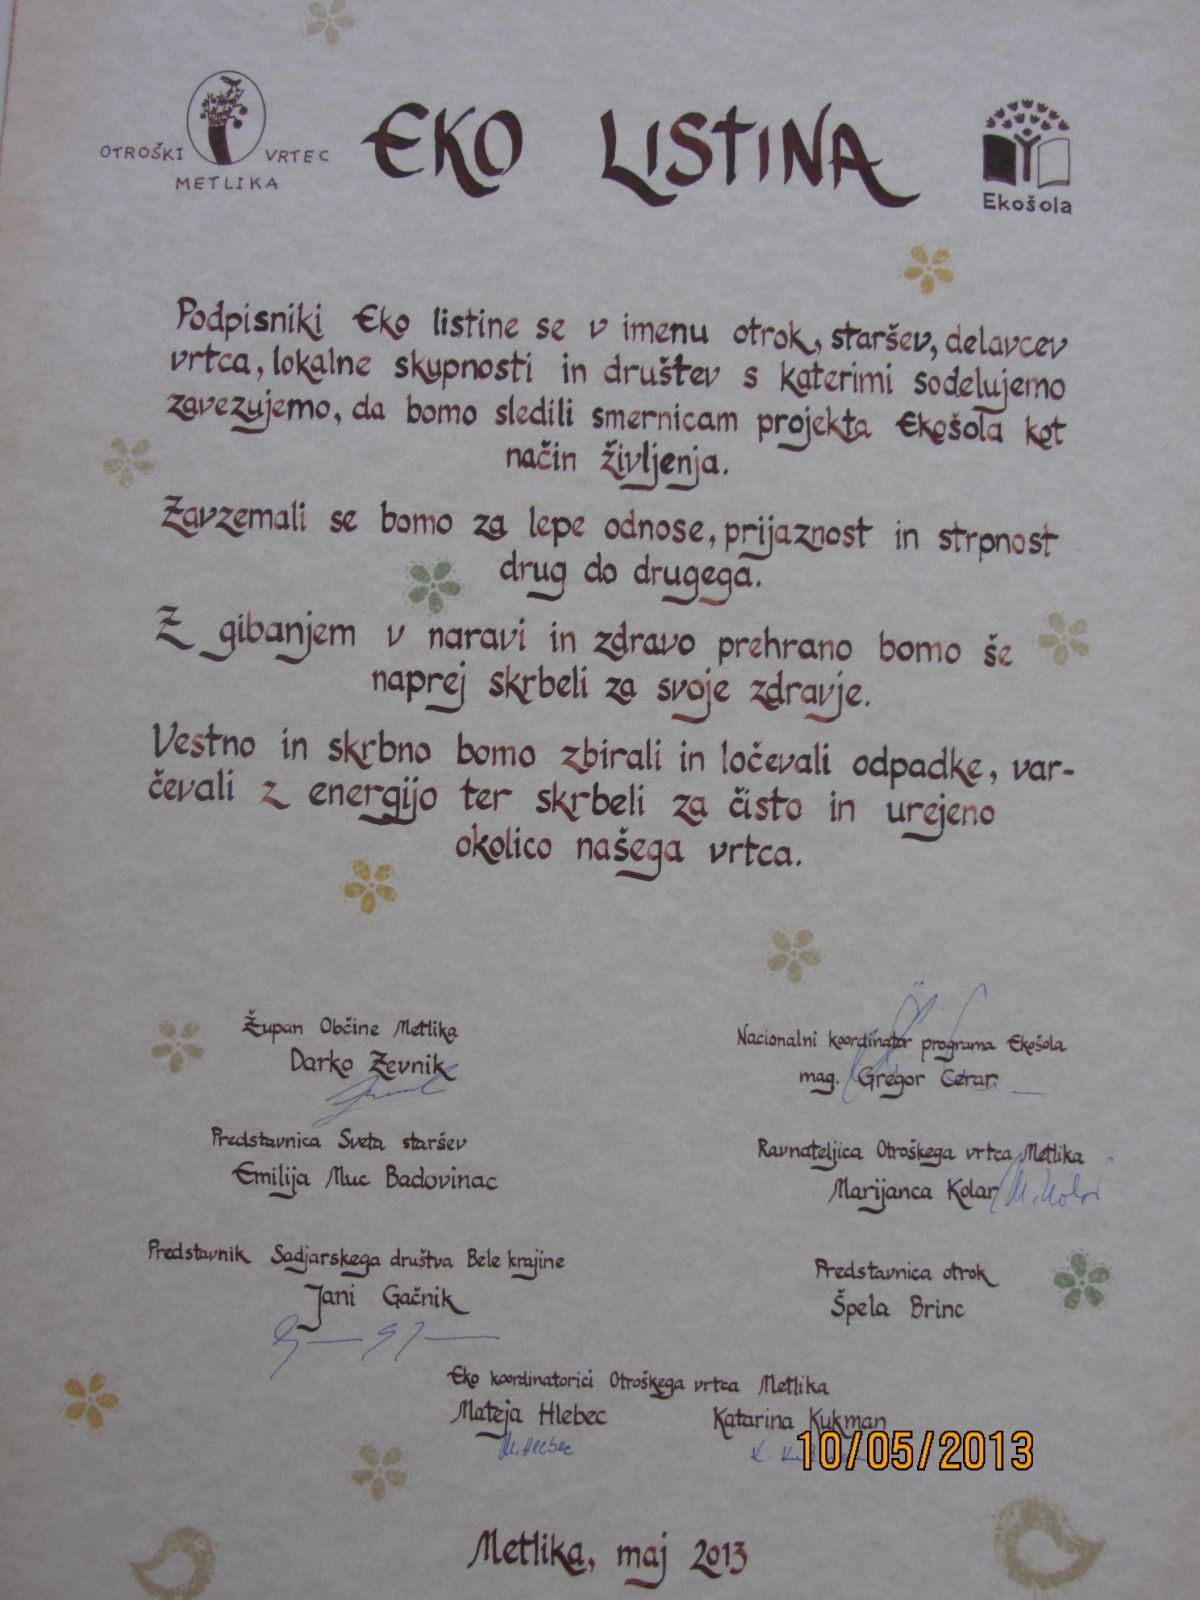 OTROŠKI VRTEC
METLIKA
EKO LISTINA
Ekošola
Podpisniki Eko listine se v imenu otrok, staršev, delavcev
vrtca, lokalne skupnosti in društev s katerimi sodelujemo
zavezujemo, da bomo sledili smernicam projekta Ekošola kot
način življenja.
Zavzemali se bomo za lepe odnose, prijaznost in strpnost
drug do drugega.
Z gibanjem v naravi in zdravo prehrano bomo še
naprej skrbeli za svoje zdravje.
Vestno in skrbno bomo zbirali in ločevali odpadke, var-
čevali z energijo ter skrbeli za čisto in urejeno
okolico našega vrtca.
Župan Občine Metlika
Darko Zevnik
Nacionalni koordinator programa Ekošola
mag. Gregor Cerar
Predstavnica Sveta staršev
Emilija Muc Badovinac
Ravnateljica Otroškega vrtca Metlika
Marijanca Kolar
M. Kolar
Predstavnik Sadjarskega društva Bele krajine
Jani Gačnik
Predstavnica otrok
Špela Brinc
Eko koordinatorici Otroškega vrtca Metlika
Mateja Hlebec Katarina Kukman
M. Hlebec
10/05/2013
Metlika, maj 2013